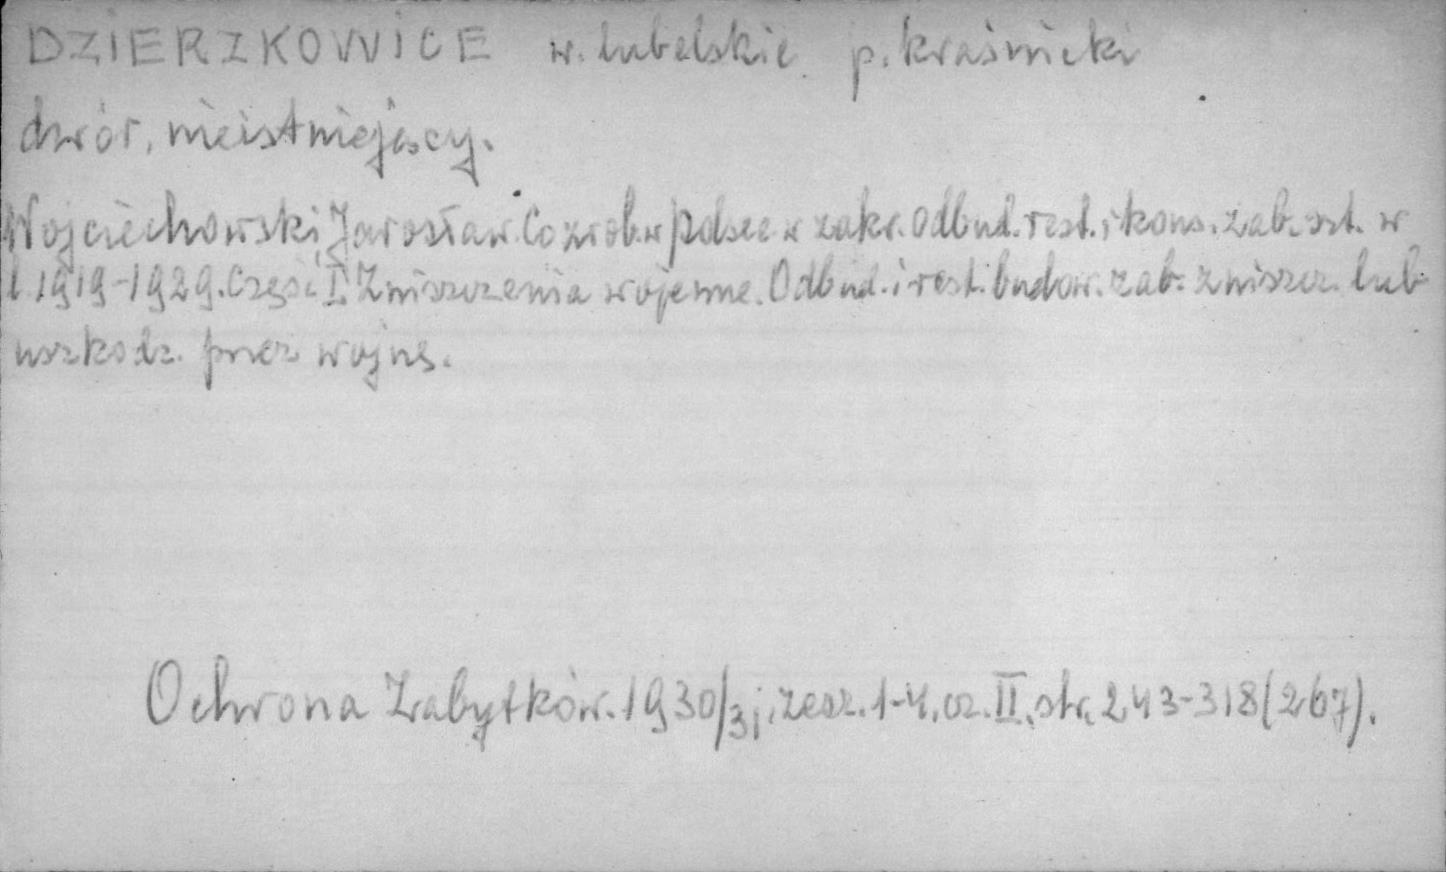 DZIERZKOWICE w. lubelskie p. kraśnicki
dwór, nieistniejący.
Wojciechowski, Jarosław. Co zrob. w Polsce w zakr. odbud. rest. i kons. zab. szt. w
l. 1919-1929. Część I. Zniszczenia wojenne. Odbud. i rest. budow. zab. zniszcz. lub
uszkodz. przez wojnę.
Ochrona Zabytków. 1930/31, zesz. 1-4, cz. II, str. 243-318 (267).